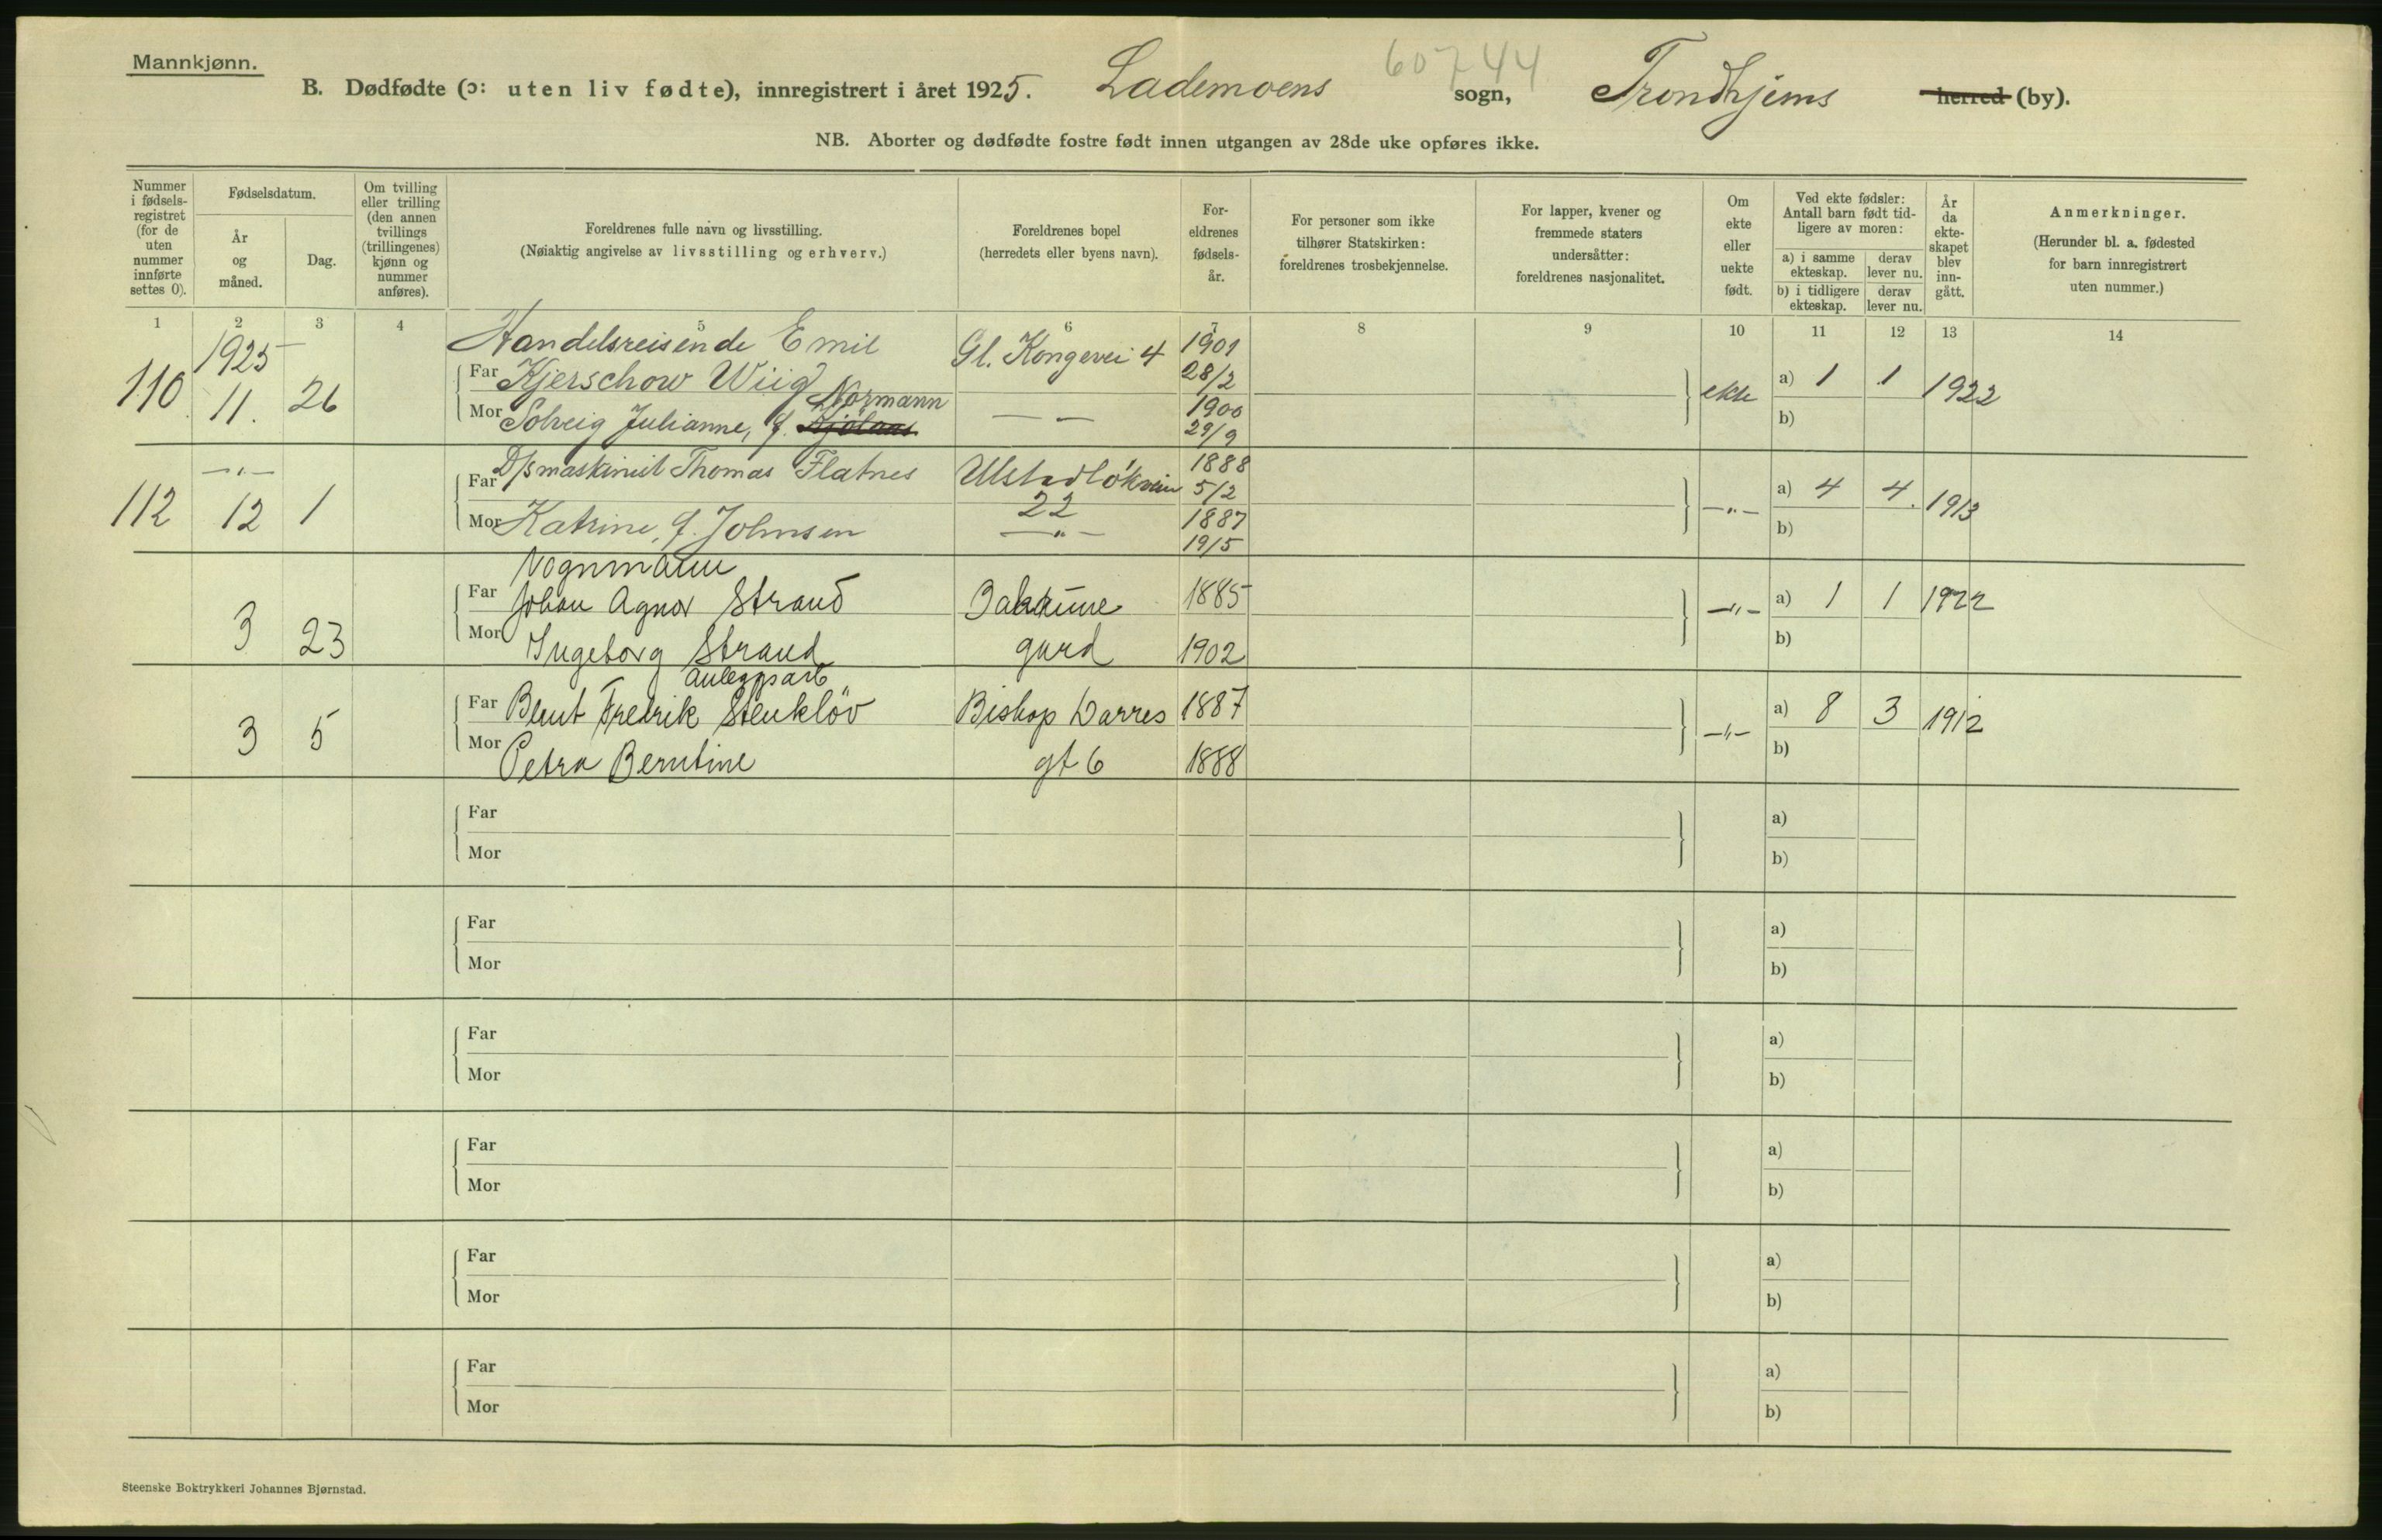 Mannkjønn.
60744
B. Dødfødte (ɔ: uten liv fødte), innregistrert i året 1925. Lademoens sogn, Trondhjems herred (by).
NB. Aborter og dødfødte fostre født innen utgangen av 28de uke opføres ikke.
Nummer i fødsels-registret (for de uten nummer innførte settes 0).
Fødselsdatum.
År og måned.
Dag.
Om tvilling eller trilling (den annen tvillings (trillingenes) kjønn og nummer anføres).
Foreldrenes fulle navn og livsstilling.
(Nøiaktig angivelse av livsstilling og erhverv.)
Foreldrenes bopel
(herredets eller byens navn).
For-eldrenes fødsels-år.
For personer som ikke tilhører Statskirken: foreldrenes trosbekjennelse.
For lapper, kvener og fremmede staters undersåtter: foreldrenes nasjonalitet.
Om ekte eller uekte født.
Ved ekte fødsler: Antall barn født tid-ligere av moren:
a) i samme ekteskap. derav lever nu.
b) i tidligere ekteskap. derav lever nu.
År da ekte-skapet blev inn-gått.
Anmerkninger.
(Herunder bl. a. fødested for barn innregistrert uten nummer.)
1 2 3 4 5 6 7 8 9 10 11 12 13 14
1925 Handelsreisende Emil Gl. Kongevei 4 1901
110 11. 26 Far Kjerschow Wiig 28/2 ekte a) 1 1 1922
Normann
Mor Solveig Julianne, f. — — 1900 b)
29/9
—"— D/s maskinist Thomas Flatnes Ulstadløkveien 1888
112 12 1 Far 22 5/2 —"— a) 4 4 1913
Mor Katrine, f. Johnsen —"— 1887 b)
19/5
Vognmann
3 23 Far Johan Agnor Strand Bakaune 1885 —"— a) 1 1 1922
Mor Ingeborg Strand gård 1902 b)
Anleggsarb
3 5 Far Bernt Fredrik Stenkløv Biskop Darres 1887 —"— a) 8 3 1912
Mor Petra Berntine gt 6 1888 b)
Far a)
Mor b)
Far a)
Mor b)
Far a)
Mor b)
Far a)
Mor b)
Far a)
Mor b)
Far a)
Mor b)
Steenske Boktrykkeri Johannes Bjørnstad.